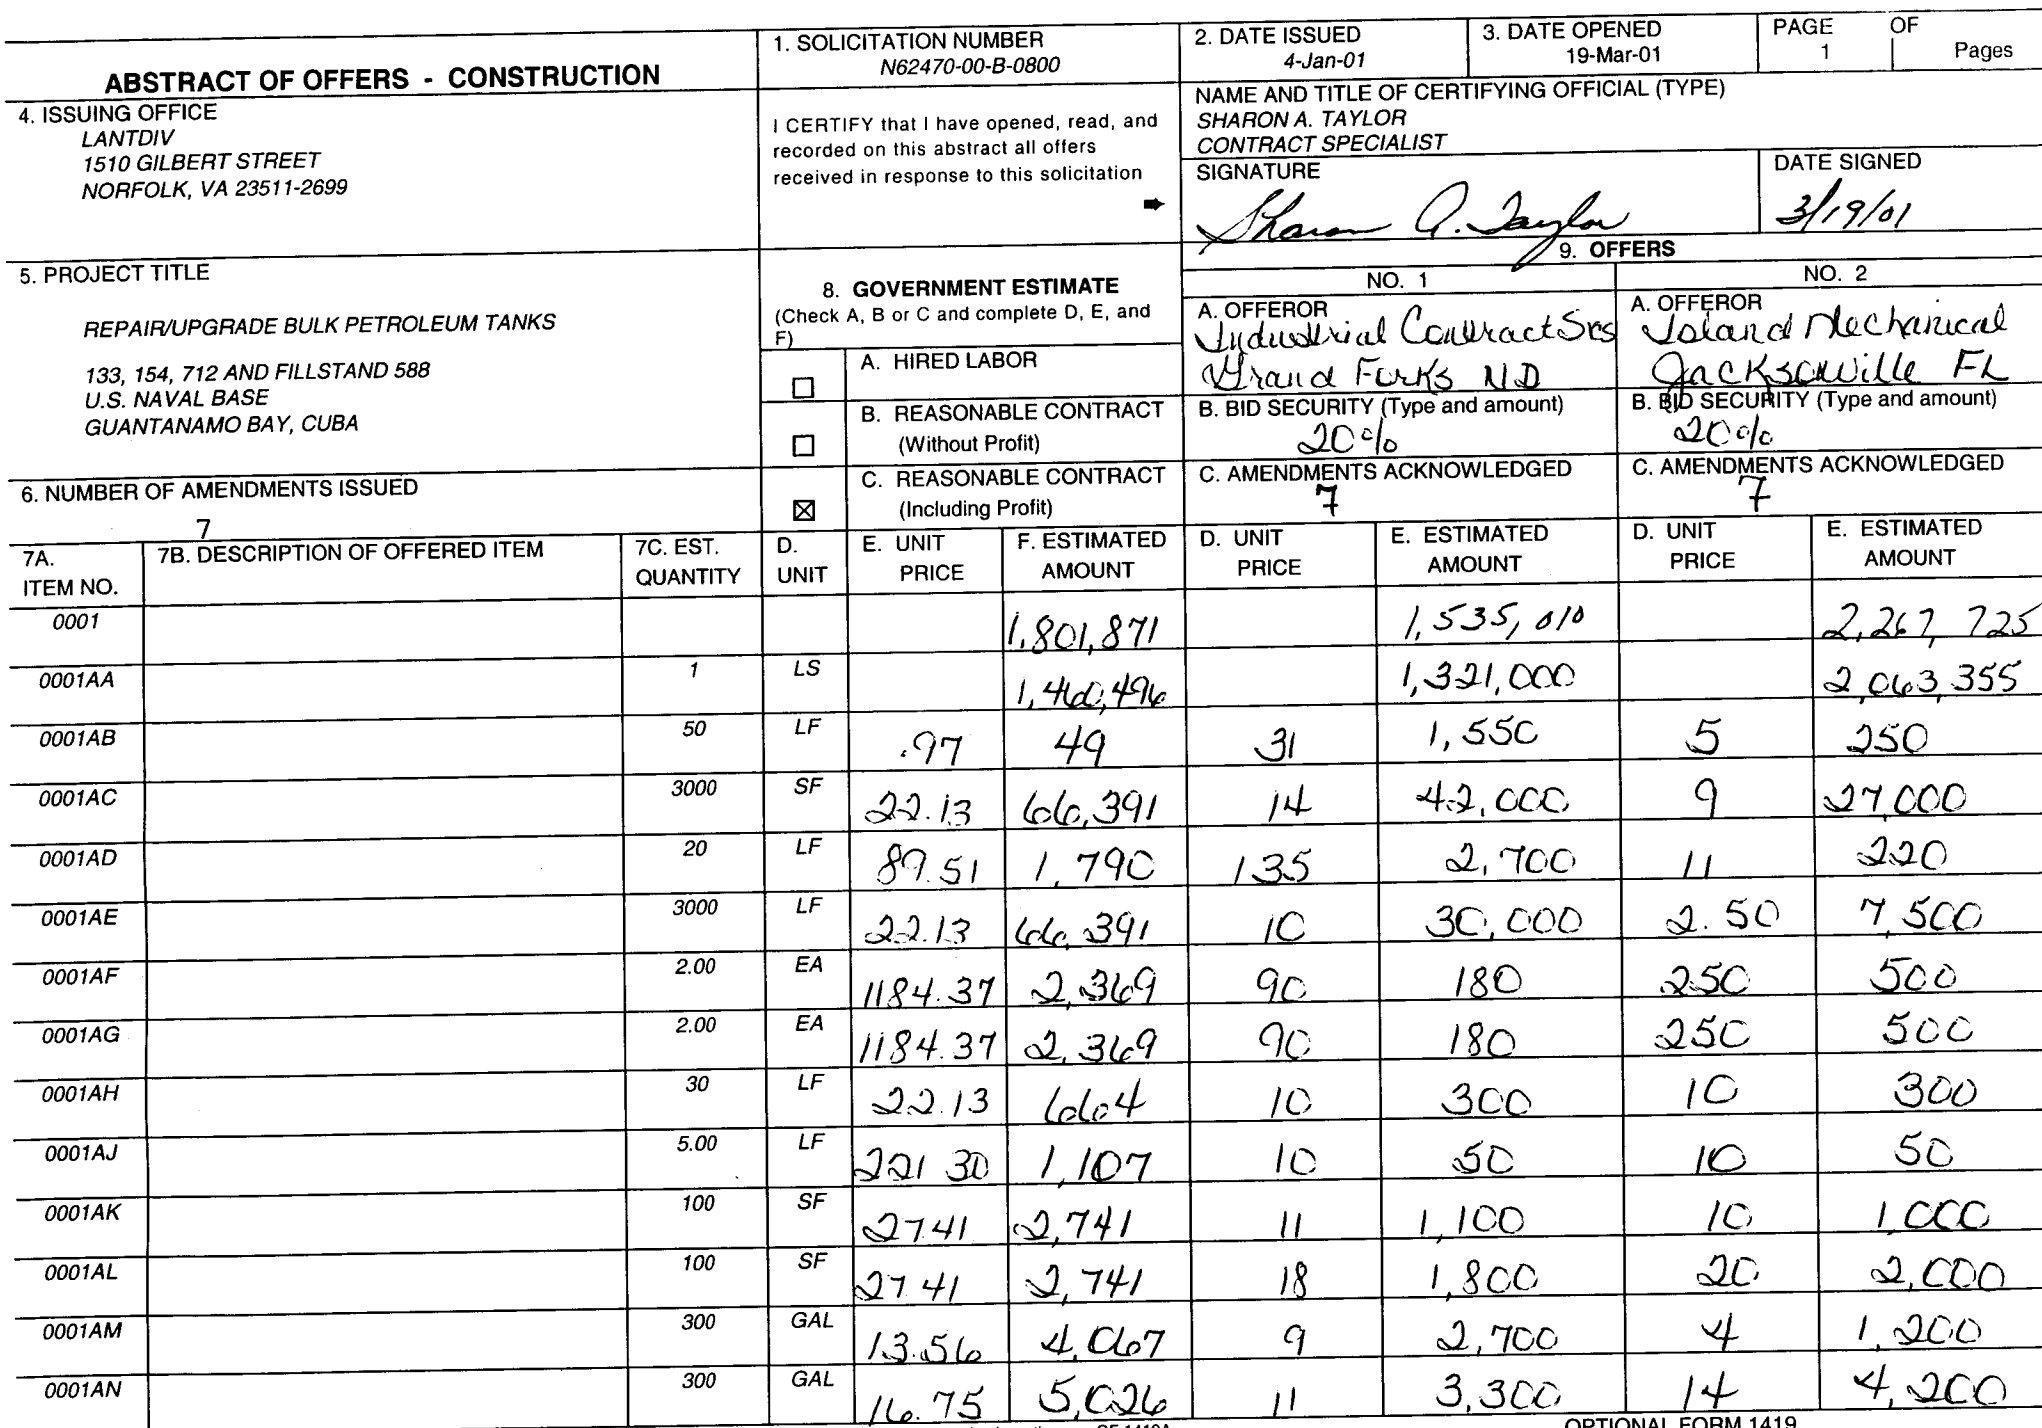 ABSTRACT OF OFFERS - CONSTRUCTION
1. SOLICITATION NUMBER
N62470-00-B-0800
2. DATE ISSUED
4-Jan-01
3. DATE OPENED
19-Mar-01
PAGE OF
1 Pages
4. ISSUING OFFICE
LANTDIV
1510 GILBERT STREET
NORFOLK, VA 23511-2699
I CERTIFY that I have opened, read, and
recorded on this abstract all offers
received in response to this solicitation
NAME AND TITLE OF CERTIFYING OFFICIAL (TYPE)
SHARON A. TAYLOR
CONTRACT SPECIALIST
SIGNATURE
Sharon A. Taylor
DATE SIGNED
3/19/01
5. PROJECT TITLE
REPAIR/UPGRADE BULK PETROLEUM TANKS
133, 154, 712 AND FILLSTAND 588
U.S. NAVAL BASE
GUANTANAMO BAY, CUBA
6. NUMBER OF AMENDMENTS ISSUED
7
8. GOVERNMENT ESTIMATE
(Check A, B or C and complete D, E, and
F)
A. HIRED LABOR
B. REASONABLE CONTRACT
(Without Profit)
C. REASONABLE CONTRACT
(Including Profit)
9. OFFERS
NO. 1
A. OFFEROR
Industrial Contract Srs
Grand Forks ND
B. BID SECURITY (Type and amount)
20%
C. AMENDMENTS ACKNOWLEDGED
7
NO. 2
A. OFFEROR
Island Mechanical
Jacksonville FL
B. BID SECURITY (Type and amount)
20%
C. AMENDMENTS ACKNOWLEDGED
7
7A. 7B. DESCRIPTION OF OFFERED ITEM 7C. EST. D. E. UNIT F. ESTIMATED D. UNIT E. ESTIMATED D. UNIT E. ESTIMATED
ITEM NO. QUANTITY UNIT PRICE AMOUNT PRICE AMOUNT PRICE AMOUNT
0001 1,801,871 1,535,010 2,267,725
0001AA 1 LS 1,460,496 1,321,000 2,063,355
0001AB 50 LF .97 49 31 1,550 5 250
0001AC 3000 SF 22.13 66,391 14 42,000 9 27,000
0001AD 20 LF 89.51 1,790 135 2,700 11 220
0001AE 3000 LF 22.13 66,391 10 30,000 2.50 7,500
0001AF 2.00 EA 1184.37 2,369 90 180 250 500
0001AG 2.00 EA 1184.37 2,369 90 180 250 500
0001AH 30 LF 22.13 664 10 300 10 300
0001AJ 5.00 LF 221 30 1,107 10 50 10 50
0001AK 100 SF 27.41 2,741 11 1,100 10 1,000
0001AL 100 SF 27.41 2,741 18 1,800 20 2,000
0001AM 300 GAL 13.56 4,067 9 2,700 4 1,200
0001AN 300 GAL 16.75 5,026 11 3,300 14 4,200
OPTIONAL FORM 1419